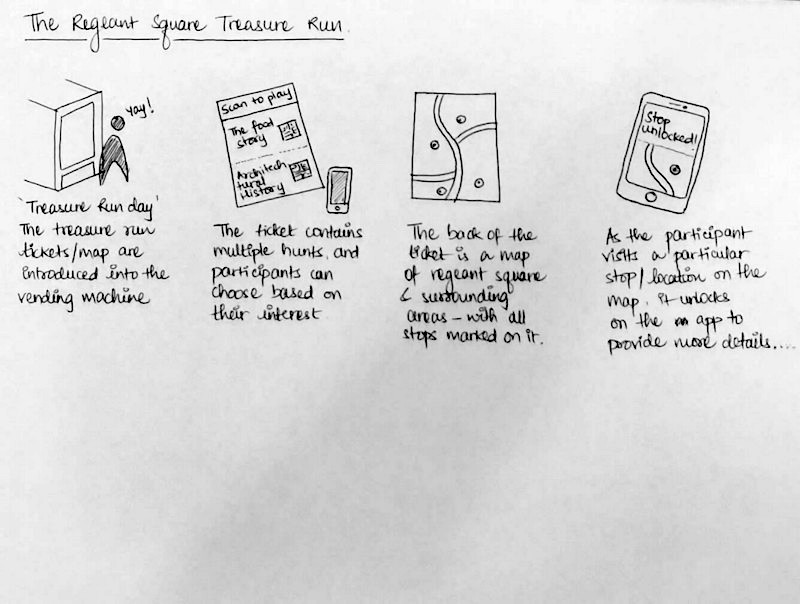 The Regeant Square Treasure Run.
yay!
'Treasure Run day'
The treasure run
tickets/map are
introduced into the
vending machine
Scan to play
The food
story
Architech
tural
History
The ticket contains
multiple hunts, and
participants can
choose based on
their interest
The back of the
ticket is a map
of regeant square
& surrounding
areas – with all
stops marked on it.
Stop
unlocked!
As the participant
visits a particular
stop/location on the
map, it unlocks
on the app to
provide more details....